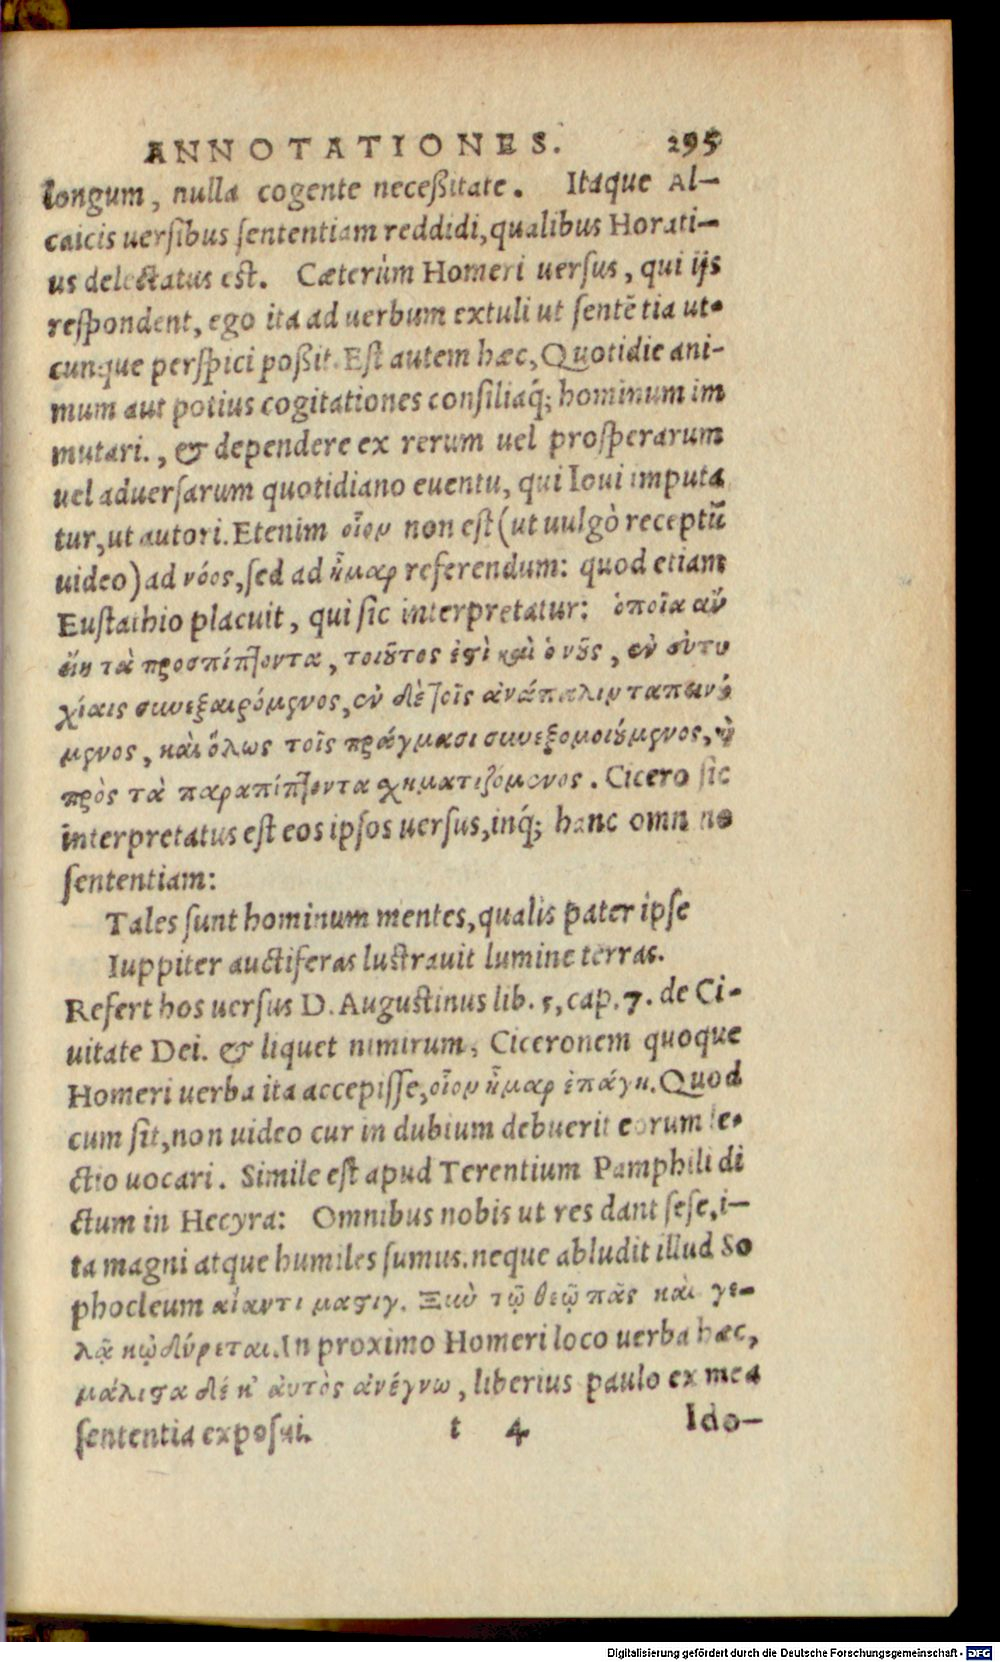 ANNOTATIONES. 295
longum, nulla cogente neceßitate. Itaque Al-
caicis uersibus sententiam reddidi, qualibus Horati-
us delectatus est. Cæterùm Homeri uersus, qui ijs
respondent, ego ita ad uerbum extuli ut sentẽtia ut-
cunque perspici poßit. Est autem hæc, Quotidie ani-
mum aut potius cogitationes consiliaq́; hominum im
mutari., & dependere ex rerum uel prosperarum
uel aduersarum quotidiano euentu, qui Ioui imputa
tur, ut autori. Etenim οἷον non est (ut uulgò receptũ
uideo) ad νόος, sed ad ἦμαρ referendum: quod etiam
Eustathio placuit, qui sic interpretatur: ὁποῖα ἂν
εἴη τὰ προσπίπτοντα, τοιοῦτος ἐστὶ καὶ ὁ νοῦς, ἐν εὐτυ
χίαις συνεξαιρόμενος, ἐν δὲ τοῖς ἀνάπαλιν ταπεινό
μενος, καὶ ὅλως τοῖς πράγμασι συνεξομοιούμενος,
πρὸς τὰ παραπίπτοντα σχηματιζόμενος. Cicero sic
interpretatus est eos ipsos uersus, inq́; hanc omnino
sententiam:
Tales sunt hominum mentes, qualis pater ipse
Iuppiter auctiferas lustrauit lumine terras.
Refert hos uersus D. Augustinus lib. 5, cap. 7. de Ci-
uitate Dei. & liquet nimirum, Ciceronem quoque
Homeri uerba ita accepisse, οἷον ἦμαρ ἐπάγῃ. Quod
cum sit, non uideo cur in dubium debuerit eorum le-
ctio uocari. Simile est apud Terentium Pamphili di
ctum in Hecyra: Omnibus nobis ut res dant sese, i-
ta magni atque humiles sumus. neque abludit illud So
phocleum αἴαντι μαστιγ. Ξὺν τῷ θεῷ πᾶς καὶ γε-
λᾷ κᾠδύρεται. In proximo Homeri loco uerba hæc,
μάλιστα δέ κ' αὐτὸς ἀνέγνω, liberius paulo ex mea
sententia exposui. t 4 Ido-
Digitalisierung gefördert durch die Deutsche Forschungsgemeinschaft - DFG